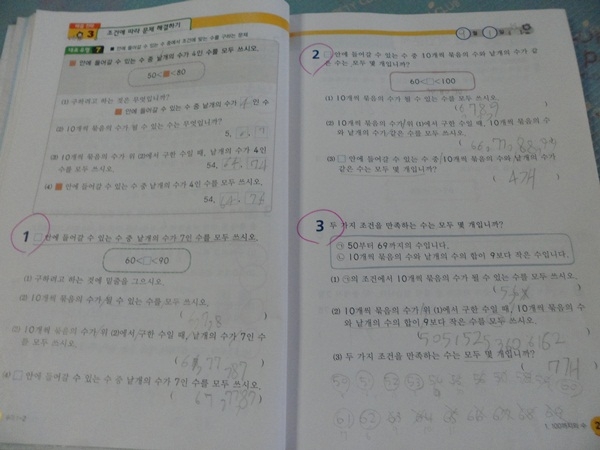 03 조건에 따라 문제 해결하기
7 ■ 안에 들어갈 수 있는 수 중에서 조건에 맞는 수를 구하는 문제
■ 안에 들어갈 수 있는 수 중 낱개의 수가 4인 수를 모두 쓰시오.
50<■<80
(1) 구하려고 하는 것은 무엇입니까?
■ 안에 들어갈 수 있는 수 중 낱개의 수가 4인 수
(2) 10개씩 묶음의 수가 될 수 있는 수는 무엇입니까?
5, 6, 7
(3) 10개씩 묶음의 수가 위 (2)에서 구한 수일 때, 낱개의 수가 4인
수를 모두 쓰시오.
54, 64, 74
(4) ■ 안에 들어갈 수 있는 수 중 낱개의 수가 4인 수를 모두 쓰시오.
54,
1 □ 안에 들어갈 수 있는 수 중 낱개의 수가 7인 수를 모두 쓰시오.
60<□<90
(1) 구하려고 하는 것에 밑줄을 그으시오.
(2) 10개씩 묶음의 수가 될 수 있는 수를 모두 쓰시오.
( 6,7,8 )
(3) 10개씩 묶음의 수가 위 (2)에서 구한 수일 때, 낱개의 수가 7인 수
를 모두 쓰시오.
( 77, 87 )
(4) □ 안에 들어갈 수 있는 수 중 낱개의 수가 7인 수를 모두 쓰시오.
( 67, 77 87 )
월 일
2 □ 안에 들어갈 수 있는 수 중 10개씩 묶음의 수와 낱개의 수가 같
은 수는 모두 몇 개입니까?
60<□<100
(1) 10개씩 묶음의 수가 될 수 있는 수를 모두 쓰시오.
( 6789 )
(2) 10개씩 묶음의 수가 위 (1)에서 구한 수일 때, 10개씩 묶음의 수
와 낱개의 수가 같은 수를 모두 쓰시오.
( 66, 77, 88, 99 )
(3) □ 안에 들어갈 수 있는 수 중 10개씩 묶음의 수와 낱개의 수가
같은 수는 모두 몇 개입니까?
( 4개 )
3 두 가지 조건을 만족하는 수는 모두 몇 개입니까?
㉠ 50부터 69까지의 수입니다.
㉡ 10개씩 묶음의 수와 낱개의 수의 합이 9보다 작은 수입니다.
(1) ㉠의 조건에서 10개씩 묶음의 수가 될 수 있는 수를 모두 쓰시오.
(2) 10개씩 묶음의 수가 위 (1)에서 구한 수일 때, 10개씩 묶음의 수
와 낱개의 수의 합이 9보다 작은 수를 모두 쓰시오.
50 51 52 53 60 61 62
(3) 두 가지 조건을 만족하는 수는 모두 몇 개입니까?
( 7개 )
50 51 52 53
61 62 63 64
1. 100까지의 수